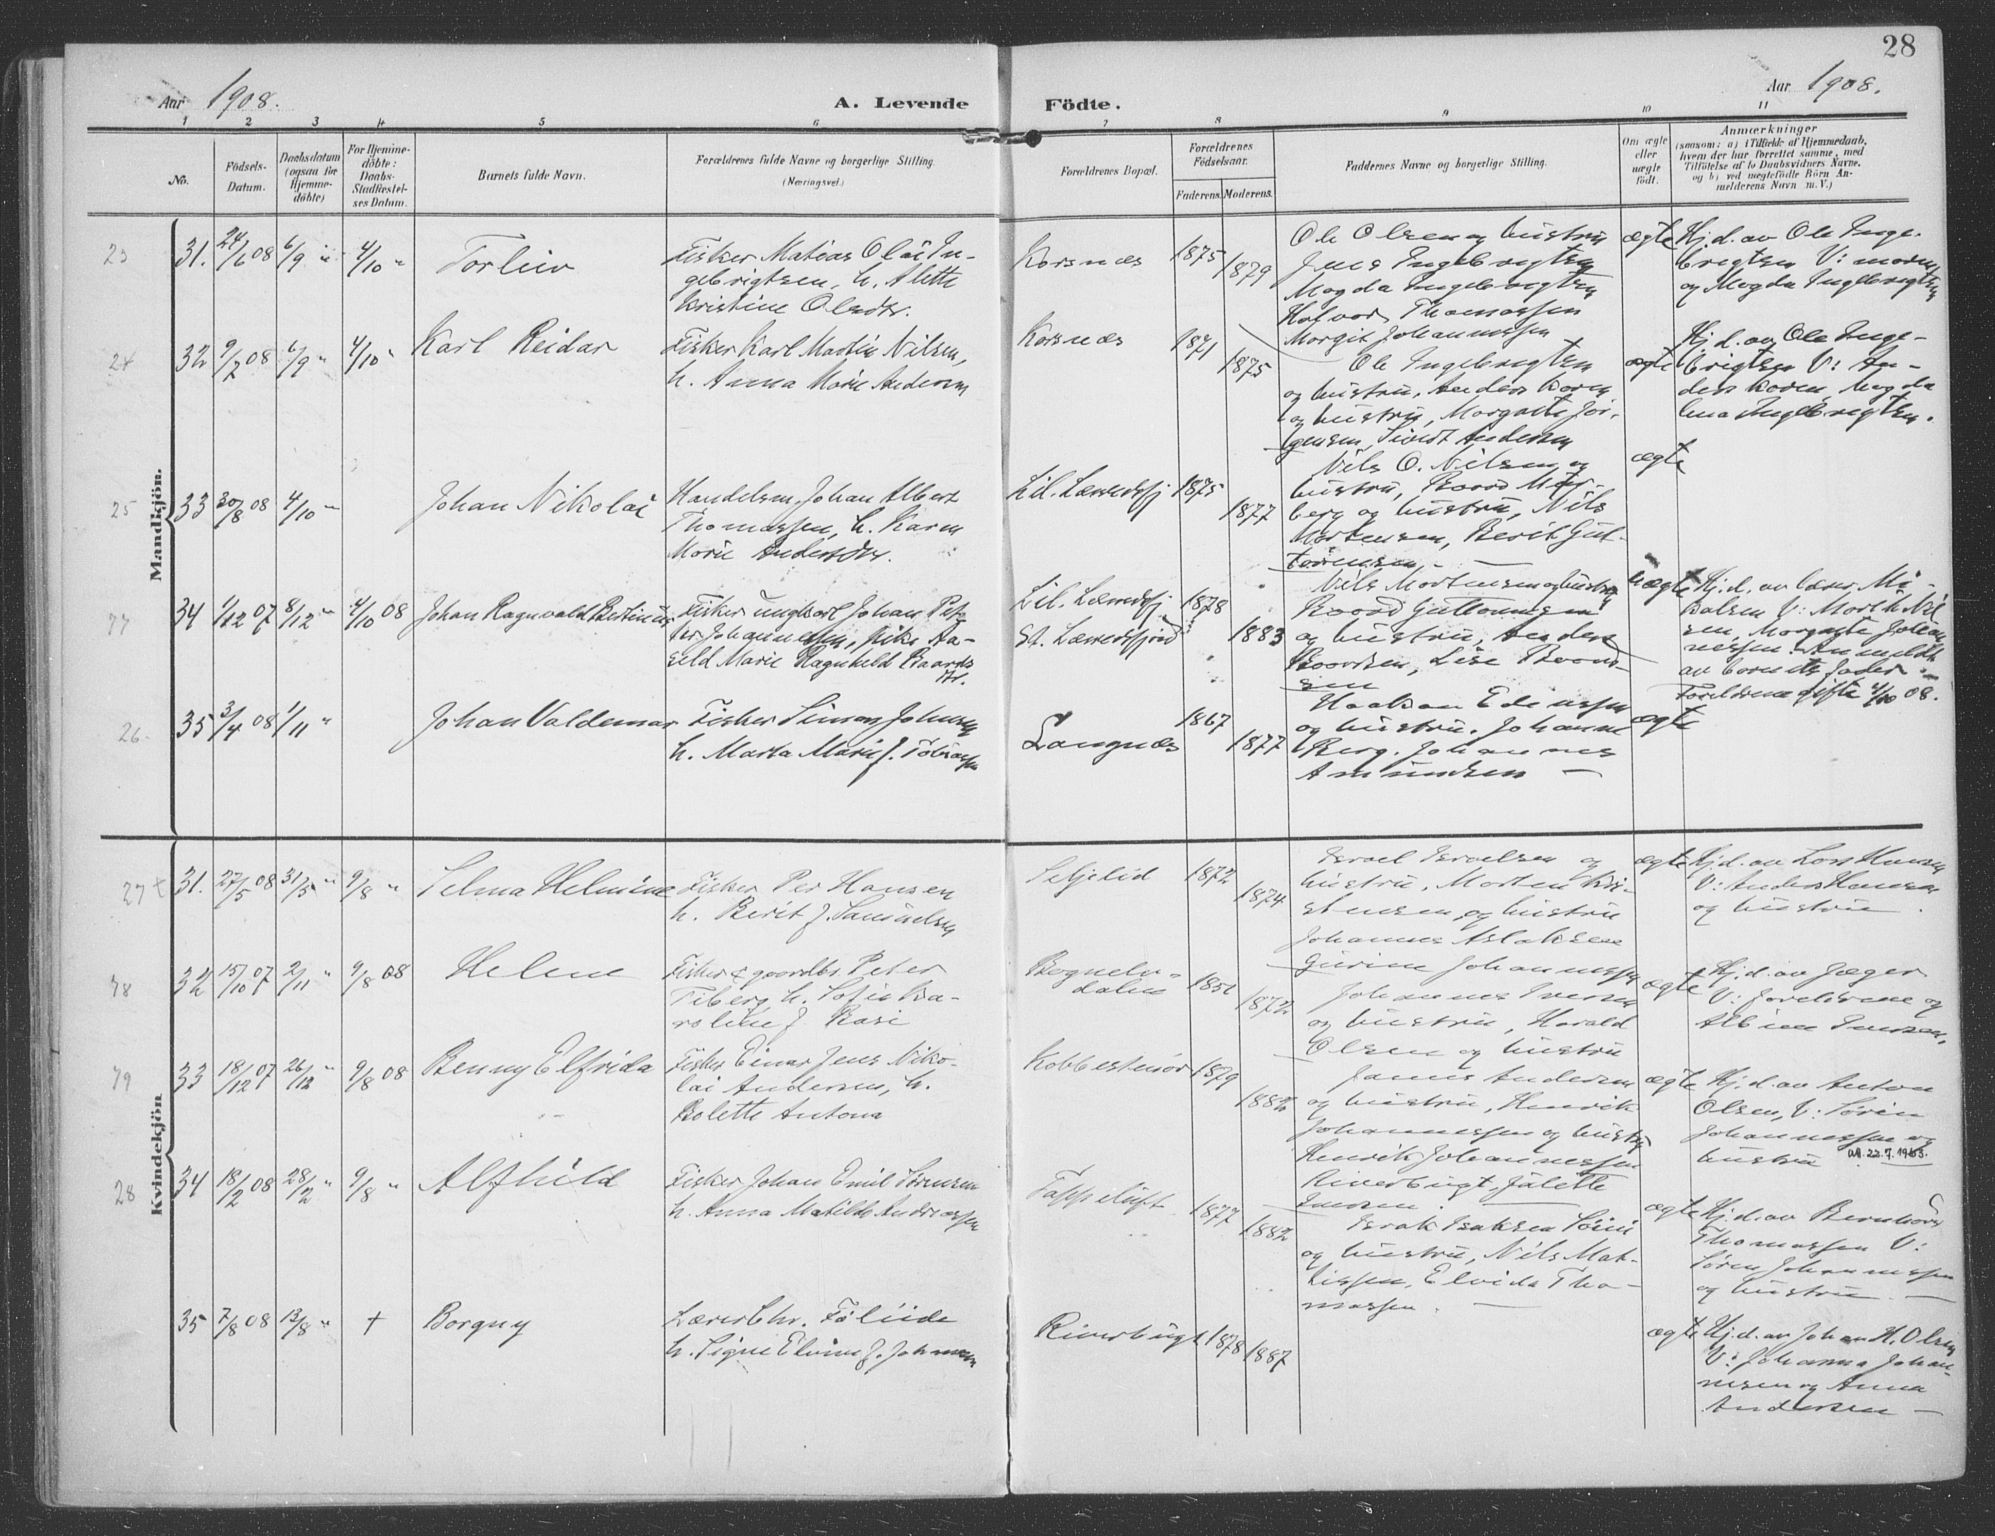 28
Aar 1908. A. Levende Födte. Aar 1908.
1 2 3 4 5 6 7 8 9 10 11
No.
Födsels-
Datum.
Daabsdatum
(ogsaa for
Hjemme-
döbte)
For Hjemme-
döbte:
Daabs-
Stadfæstel-
ses Datum.
Barnets fulde Navn.
Forældrenes fulde Navne og borgerlige Stilling.
(Næringsvei.)
Forældrenes Bopæl.
Forældrenes
Födselsaar.
Faderens. Moderens.
Faddernes Navne og borgerlige Stilling.
Om ægte
eller
uægte
födt.
Anmærkninger
(saasom: a) i Tilfælde af Hjemmedaab,
hvem der har forrettet samme, med
Tilföielse af to Daabsvidners Navne.
og b) ved uegtefödte Börn An-
melderens Navn m. V.)
Mandkjön.
23 31. 24/6 08 6/9 " 4/10 " Torleiv
Fisker Matias Olai In-
gebrigtsen, h. Alette
Kristine Olsdtr.
Korsnæs 1875 1879
Ole Olsen og hustru
Jens Ingebrigtsen
Magda Ingebrigtsen
Halvor Thomassen
Margit Johannessen
ægte
Hj. d. av Ole Inge-
brigtsen V: moren
og Magda Ingebrigtsen
24 32 9/7 08 6/9 " 4/10 " Karl Reidar
Fisker Karl Martin Nilsen,
h. Anna Marie Andersen
Korsnæs 1871 1875
Ole Ingebrigtsen
og hustru, Anders Koren
og hustru, Margrete Jör-
gensen, Sivert Andersen
ægte
Hj. d. av Ole Inge-
brigtsen V: An-
ders Koren, Magda
lena Ingebrigtsen.
25 33 30/8 08 4/10 " Johan Nikolai
Handelsm. Johan Albert
Thomassen, h. Karen
Marie Andersdtr.
Lil. Lerresfj 1875 1877
Nils O. Nilsen og
hustru, Baard Mor-
berg og hustru, Nils
Mortensen, Berit Gut-
tormsen. —
ægte
77 34 1/12 07 8/12 " 4/10 08 Johan Ragnvald Bertinus
Fisker ungkarl Johan Pet-
ter Johannessen, pike Aa-
seld Marie Ragnhild Baards
dtr.
Lil. Lerresfj 1878
St. Lerresfjord 1883
Nils Mortensen og hustru
Baard Guttormsen
og hustru, Anders
Baardsen, Lise Baard-
sen
uægte
Hj. d. av lærer Mi-
kalsen V: Marit Nil
sen, Margrete Johan
nessen. Anmeldt
av barnets fader —
Forældrene gifte 4/10 08.
26. 35 3/4 08 1/11 " Johan Valdemar
Fisker Simon Johnsen
h. Marta Marie f. Tobiassen
Langnæs 1867 1877
Haakon Edeassen
og hustru. Johanne
Berg. Johannes
Amundsen —
ægte
Kvindekjön
27 + 31. 27/5 08 31/5 " 9/8 " Selma Helmine
Fisker Per Hansen
h. Berit f. Samuelsen
Seljelid 1872 1874
Israel Israelsen og
hustru, Morten Kri-
stensen og hustru
Johannes Aslaksen
Gurine Johannessen
ægte
Hj. d. av Lars Hansen
V: Anders Hansen
og hustru.
78 32 15/10 07 2/11 " 9/8 08 Helene
Fisker & gaardbr Peter
Tiberg h. Sofie Ka-
roline f. Kasi
Bognelv-
dalen 1851 1872
Johannes Iversen
og hustru, Harald
Olsen og hustru
ægte
Hj. d. av Jæger
V: forældrene og
Albine Iversen.
79 33 18/12 07 26/12 " 9/8 08 Benny Elfrida
Fisker Einar Jens Niko-
lai Andersen, h.
Bolette Antona
Kobbestenör 1879 1882
James Andersen
og hustru, Henrik
Johannessen og hustru
Henrik Johannessen
Riverbugt, Julette
Iversen.
ægte
Hj. d. av Anton
Olsen, V: Sörin
Johannessen og
hustru
att. 22.7.1963.
28 34 18/2 08 28/2 " 9/8 " Alfhild
Fisker Johan Emil Sörensen
h. Anna Matilde Andreassen
Tappeluft 1877 1882
Israk Isaksen Sörin
og hustru, Nils Mat-
hissen, Elvida Tho-
massen. —
ægte
Hj. d. av Bernhard
Thomassen V:
Sören Johannessen
og hustru. —
35 7/8 08 13/8 " + Borgny
Lærer Chr. Fölüide
h. Signe Elvine f. Johansen
Riverbugt 1878 1887
ægte
Hj. d. av Johan H. Olsen
V: Johanna Johan-
nesen og Anna
Andersen —